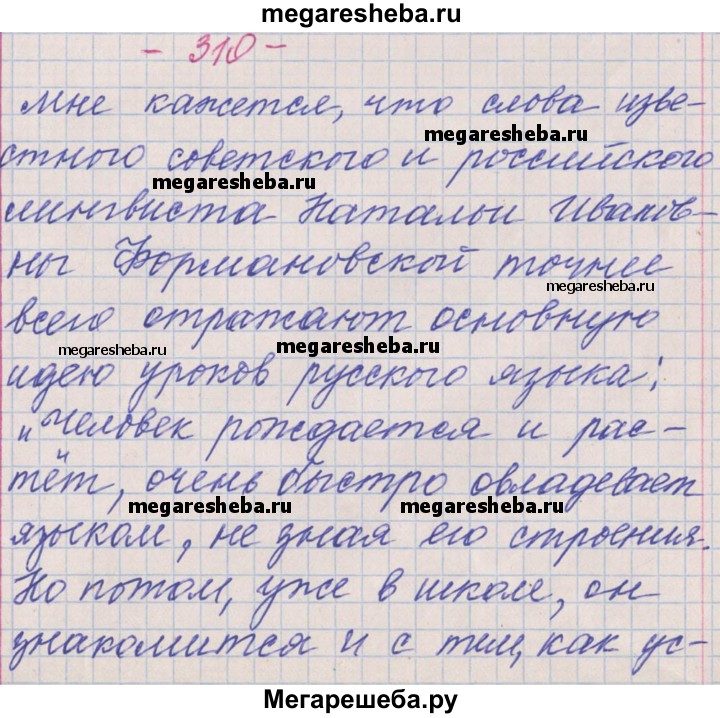 megaresheba.ru
- 310 -
Мне кажется, что слова изве-
megaresheba.ru
стного советского и российского
megaresheba.ru
лингвиста Натальи Иванов-
ны Формановской точнее
megaresheba.ru
всего отражают основную
megaresheba.ru
megaresheba.ru
идею уроков русского языка:
"Человек рождается и рас-
тёт, очень быстро овладевает
megaresheba.ru
megaresheba.ru
языком, не зная его строения.
Но потом, уже в школе, он
знакомится и с тем, как ус-
Мегарешеба.ру